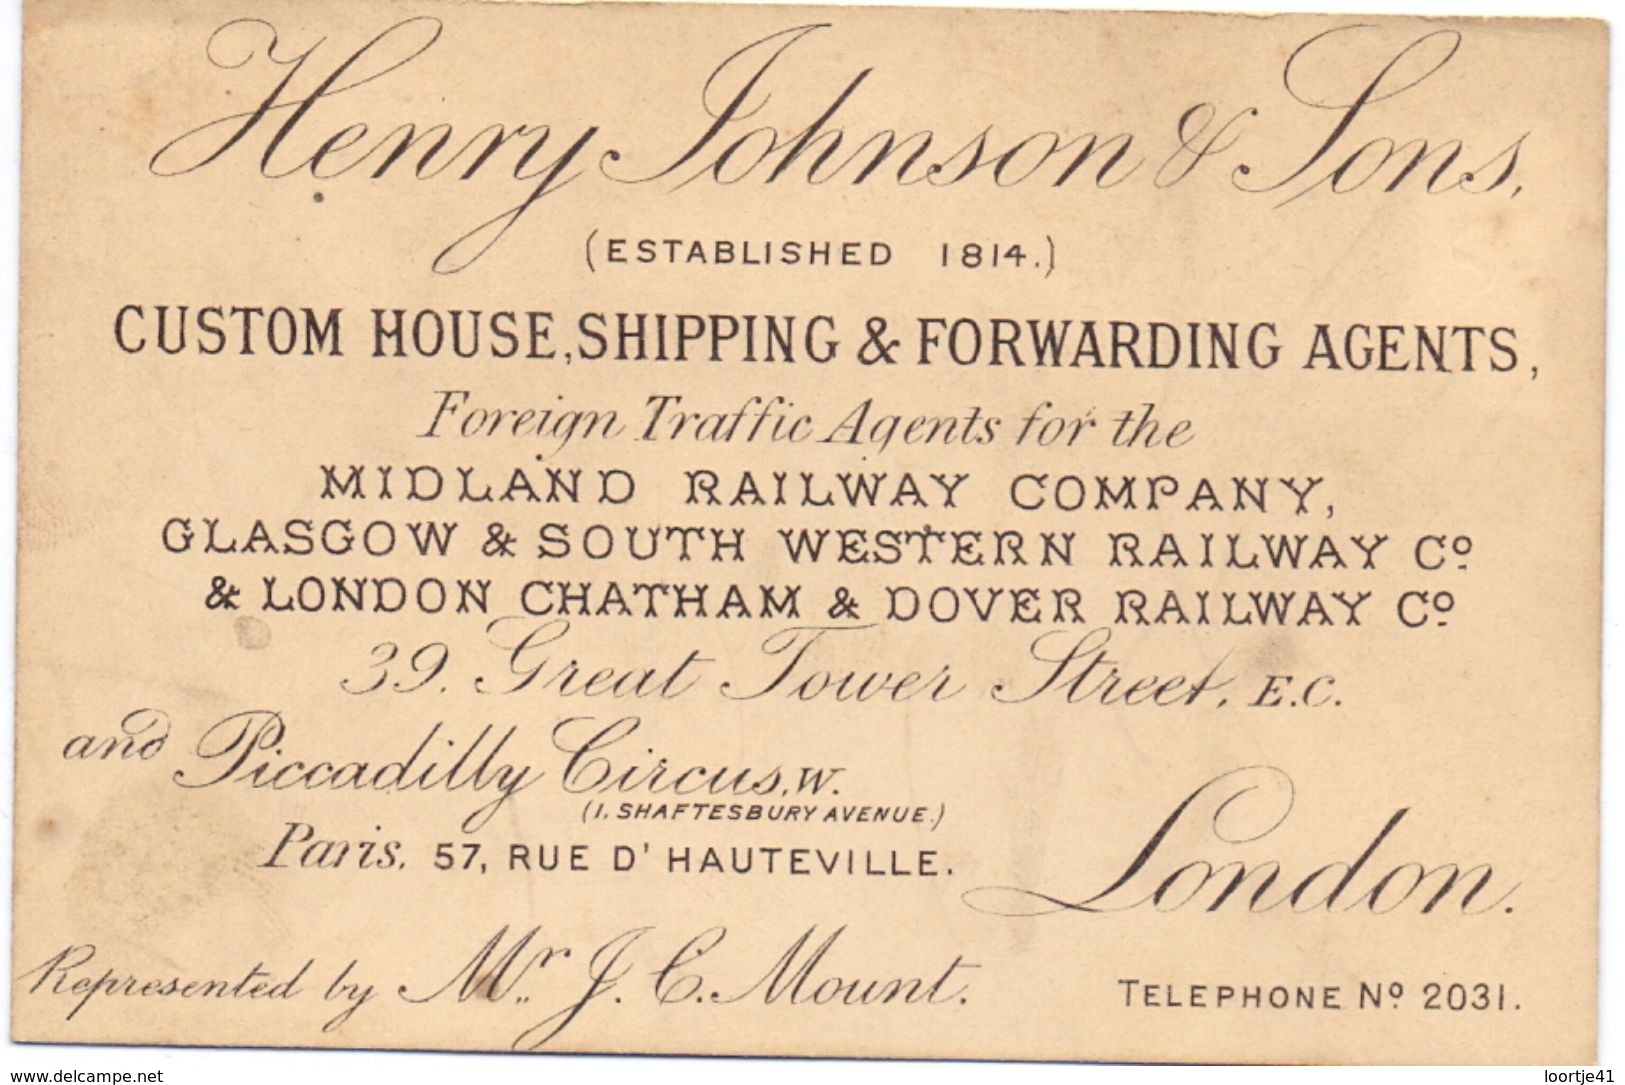 Henry Johnson & Sons,
(ESTABLISHED 1814.)
CUSTOM HOUSE, SHIPPING & FORWARDING AGENTS,
Foreign Traffic Agents for the
MIDLAND RAILWAY COMPANY,
GLASGOW & SOUTH WESTERN RAILWAY Cº
& LONDON CHATHAM & DOVER RAILWAY Cº
39. Great Tower Street, E.C.
and Piccadilly Circus, W.
(1, SHAFTESBURY AVENUE.)
Paris. 57, RUE D' HAUTEVILLE.
London.
Represented by Mr. J. C. Mount.
TELEPHONE Nº 2031.
www.delcampe.net
loortje41